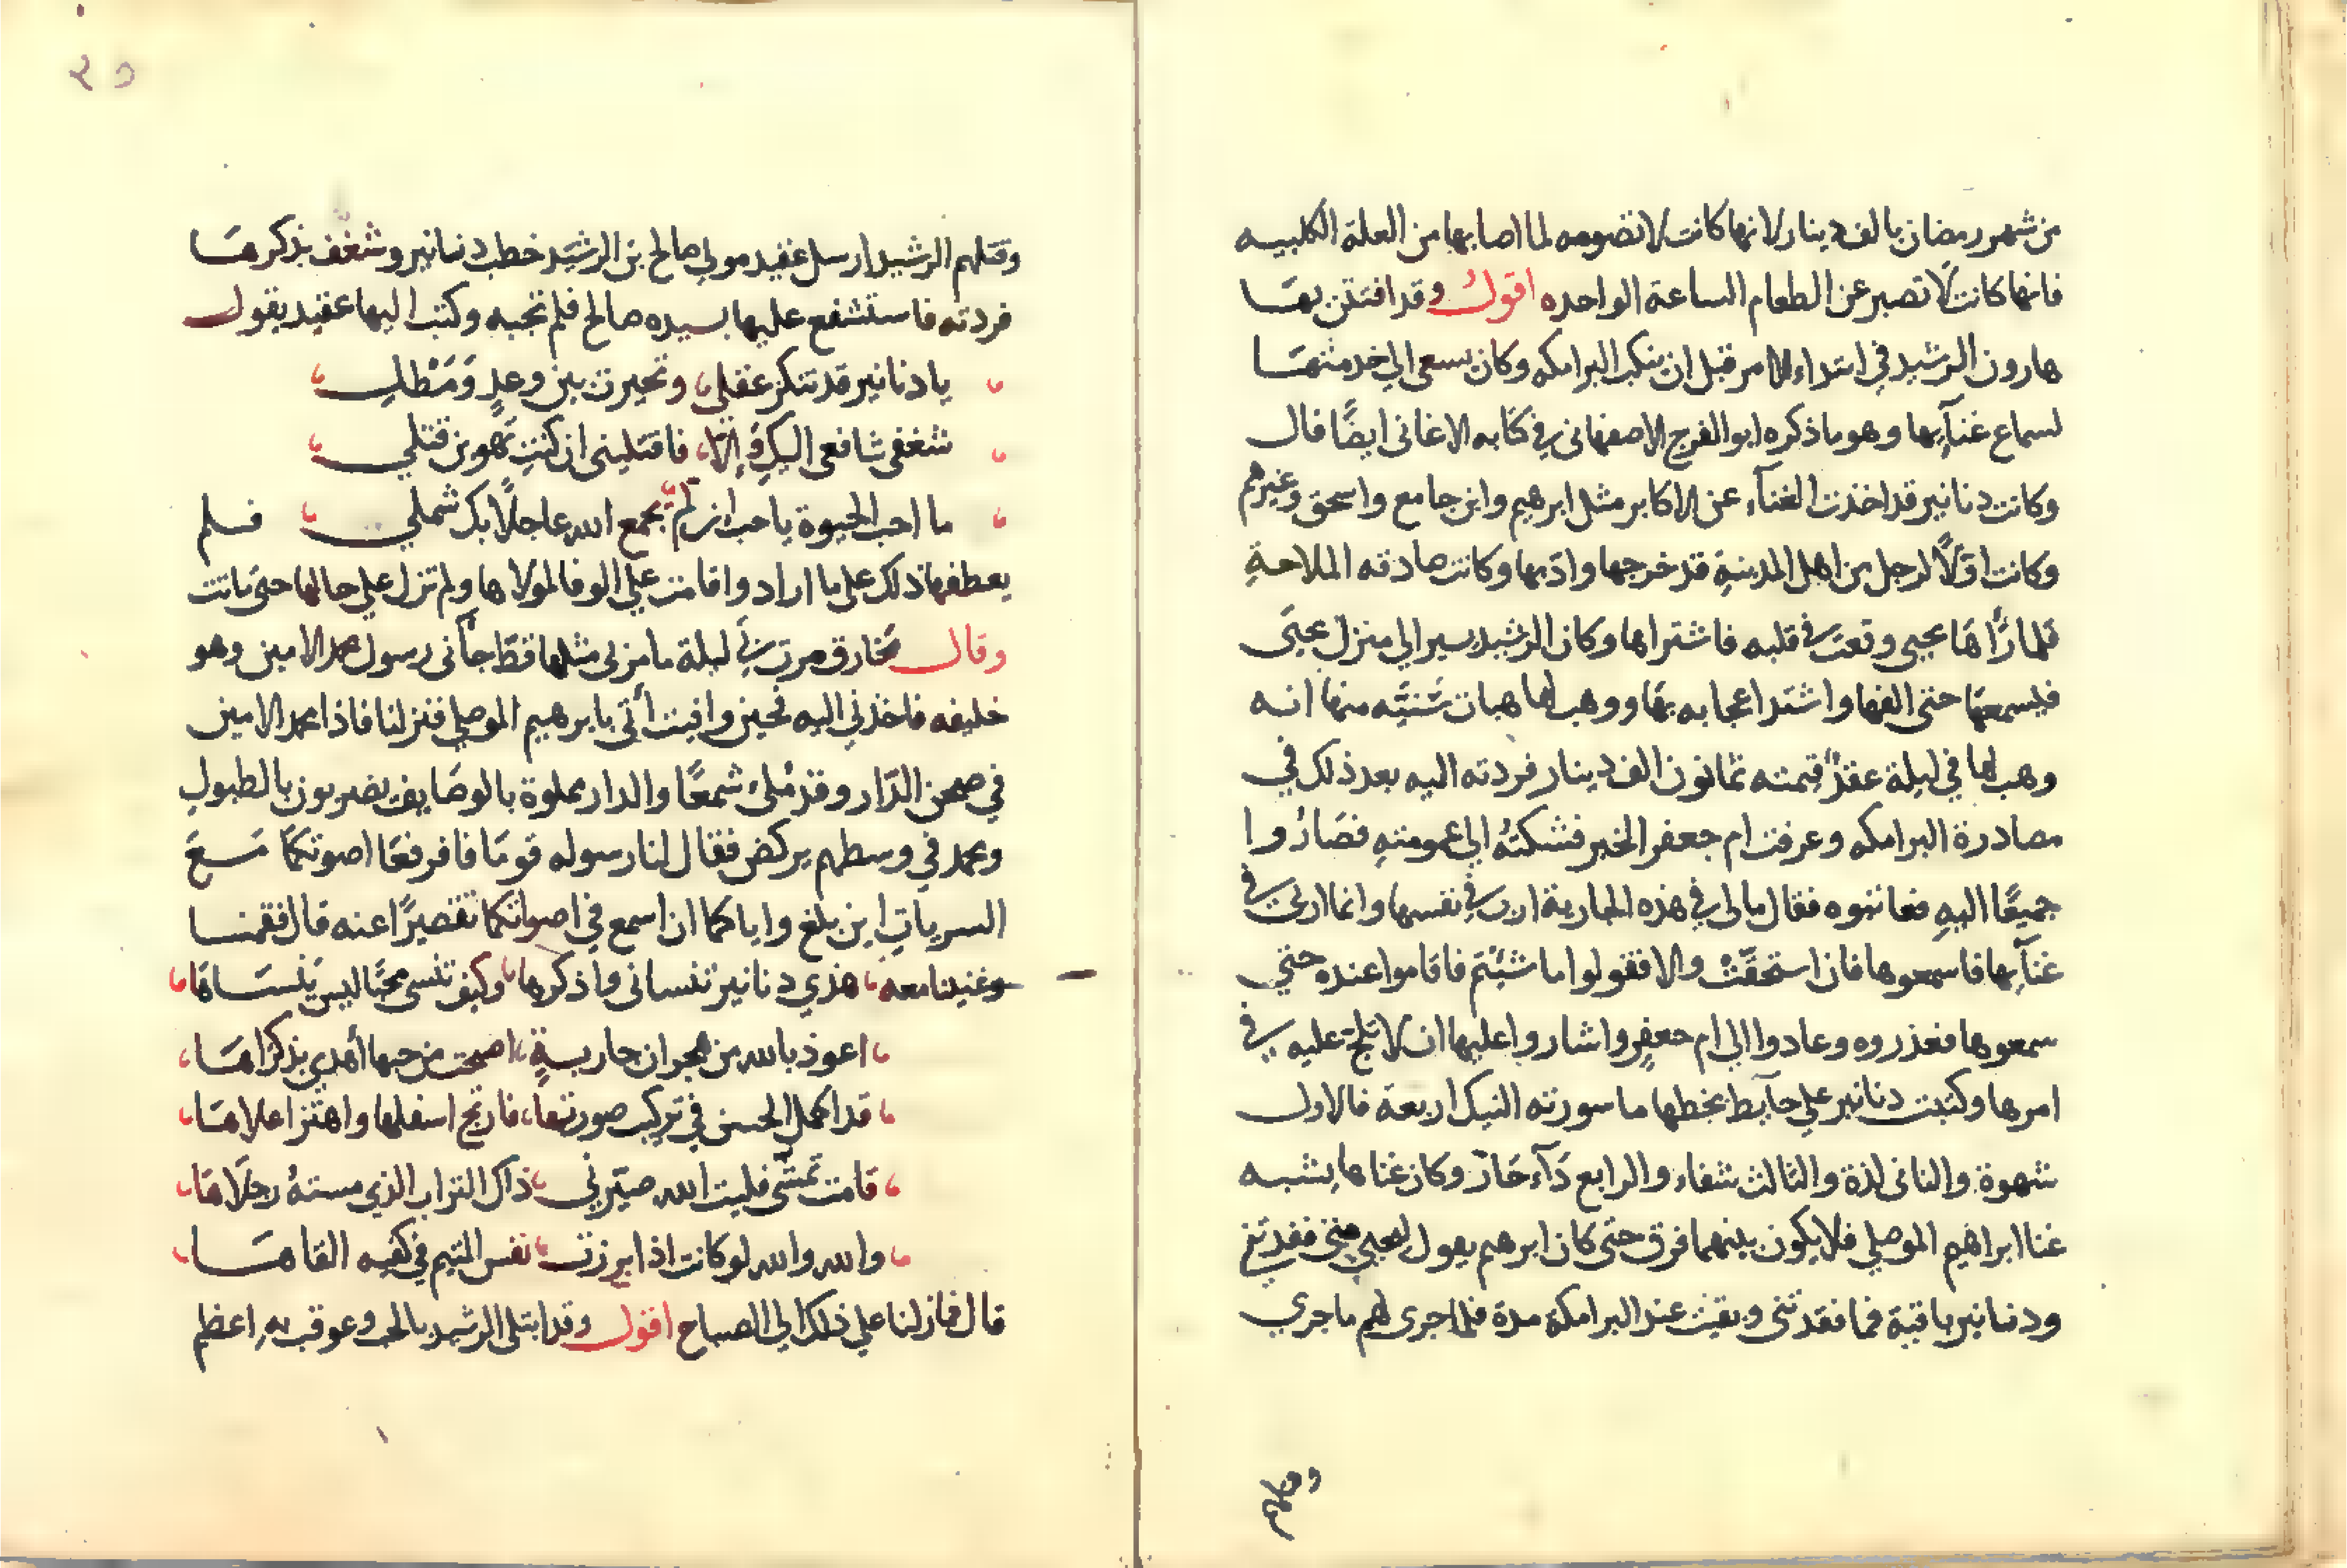 من شهر رمضان بالف دينار لانها كانت لا تصومه لما اصابها من العلة الكلبيه
فانها كانت لا تصبر عن الطعام الساعة الواحده اقول وقد افتتن بها
هارون الرشيد في ابتداء الامر قبل ان ينكب البرامكه وكان يسعى الي خدمتها
لسماع غنآيها وهو ما ذكره ابو الفرج الاصفهاني في كتابه الاغاني ايضًا قال
وكانت دنانير قد اخذت الغنآء عن الاكابر مثل ابرهيم وابن جامع واسحق وغيرهم
وكانت اوّلًا لرجل من اهل المدينةِ قد خرجها وادّبها وكانت صادقه الملاحةِ
فلما رَاها يحيى وقعت في قلبه فاشتراها وكان الرشيد يسير الي منزل يحيَى
فيسمعها حتى الفها واشتد اعجابه بها ووهب لها هبات سَنيَّه منها انه
وهب لها في ليلة عقدٌ قيمته ثمانون الف دينار فردته اليه بعد ذلك في
مصادرة البرامكه وعرفت ام جعفر الخبر فشكتهُ الي عمومتهِ فصَارُوا
جميعًا اليهِ فعاتبوه فقال مالى في هذه الجارية ارب في نفسها وانما اربي في
غنآيها فاسمعوها فان استحقّت والا فقولوا ما شيتم فاقاموا عنده حتي
سمعوها فعذروه وعادوا الي ام جعفرٍ واشاروا عليها ان لا تلح عليه في
امرها وكتبت دنانير علي حآيط بخطها ما سورته النيك اربعة فالاول
شهوة والثاني لذة والثالث شفاء والرابع دَآء حَارّ وكان غناها يشبه
غنا ابراهيم الموصلي فلا يكون بينهما فرق حتي كان ابرهيم يقول ليحيي متي فقدتني
ودنانير باقية فما فقدتني وبقيت عند البرامكة مدة فلما جرى لهم ما جري
وقتلهم
٢٥
وقتلهم الرشيد ارسل عقيد مولي صالح بن الرشيد خطب دنانير وشغف بذكرها
فردته فاستشفع عليها بسيده صالح فلم تجبه وكتب اليها عقيد يقول
يا دنانير قد تنكر عقلي وتحيرت بين وعدٍ وَمَطْلِ
شغفي شافعي اليكِ وَإلّا فاقتليني ان كنتِ تَهْوين قتلي
ما احب الحيوة يا حب ان لم يجمع الله عاجلًا بكِ شملي فلم
يعطفها ذلك على ما اراد واقامت علي الوفا لمولاها ولم تزل علي حالها حتى ماتت
وقال مخارق مرت بي ليلة ما مر بي مثلها قطّ جآني رسول محمد الامين وهو
خليفه فاخذني اليه فحين وافيت أُتي بابرهيم الموصلي فنزلنا فاذا محمد الامين
في صحن الدّار وقد مُلئ شمعًا والدار مملوة بالوصَايف يضربون بالطبولِ
ومحمد في وسطهم يركض فقال لنا رسوله قومَا فارفعَا اصوتكمَا مَعَ
السرياتِ اين بلغ واياكما ان اسمع في اصواتكما تقصيرًا عنه قال فقمنا
وغنينا معه هذي دنانير تنساني واذكرها وكيف تنسى محبًا ليس يَنسَاهَا
اعوذ بالله من هجران جاريةٍ اصبحت من حبها أهذي بذكرَاهَا
قد اكمل الحسن في تركيب صورتها فارتج اسفلها واهتز اعلاهَا
قامت تمشّي فليت الله صيّرني ذاك التراب الذي مستهُ رجلَاهَا
والله والله لو كانت اذا برزت نفس المتيم في كفيه القاها
قال فما زلنا علي ذلك الي الصباح اقول وقد ابتلي الرشيد بالحب وعوقب بهِ اعظم